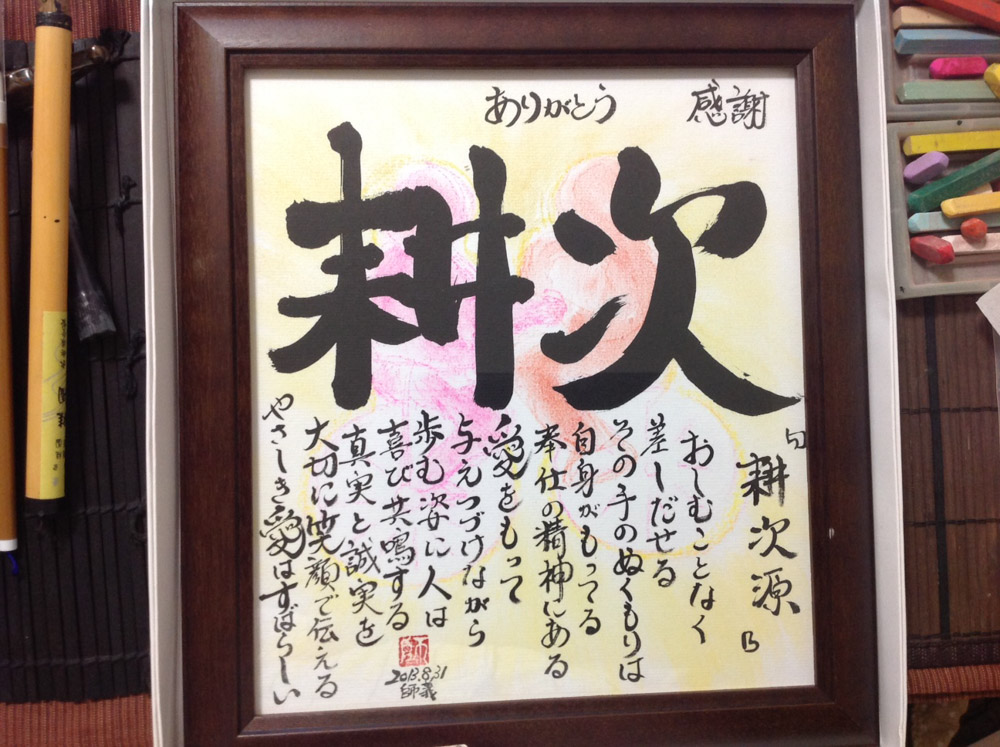 ありがとう 感謝
耕次
「耕次源」
おしむことなく
差しだせる
その手のぬくもりは
自身がもってる
奉仕の精神にある
愛をもって
与えつづけながら
歩む姿に人は
喜び共鳴する
真実と誠実を
大切に笑顔で伝える
やさしき愛はすばらしい
2013.8.31
師義